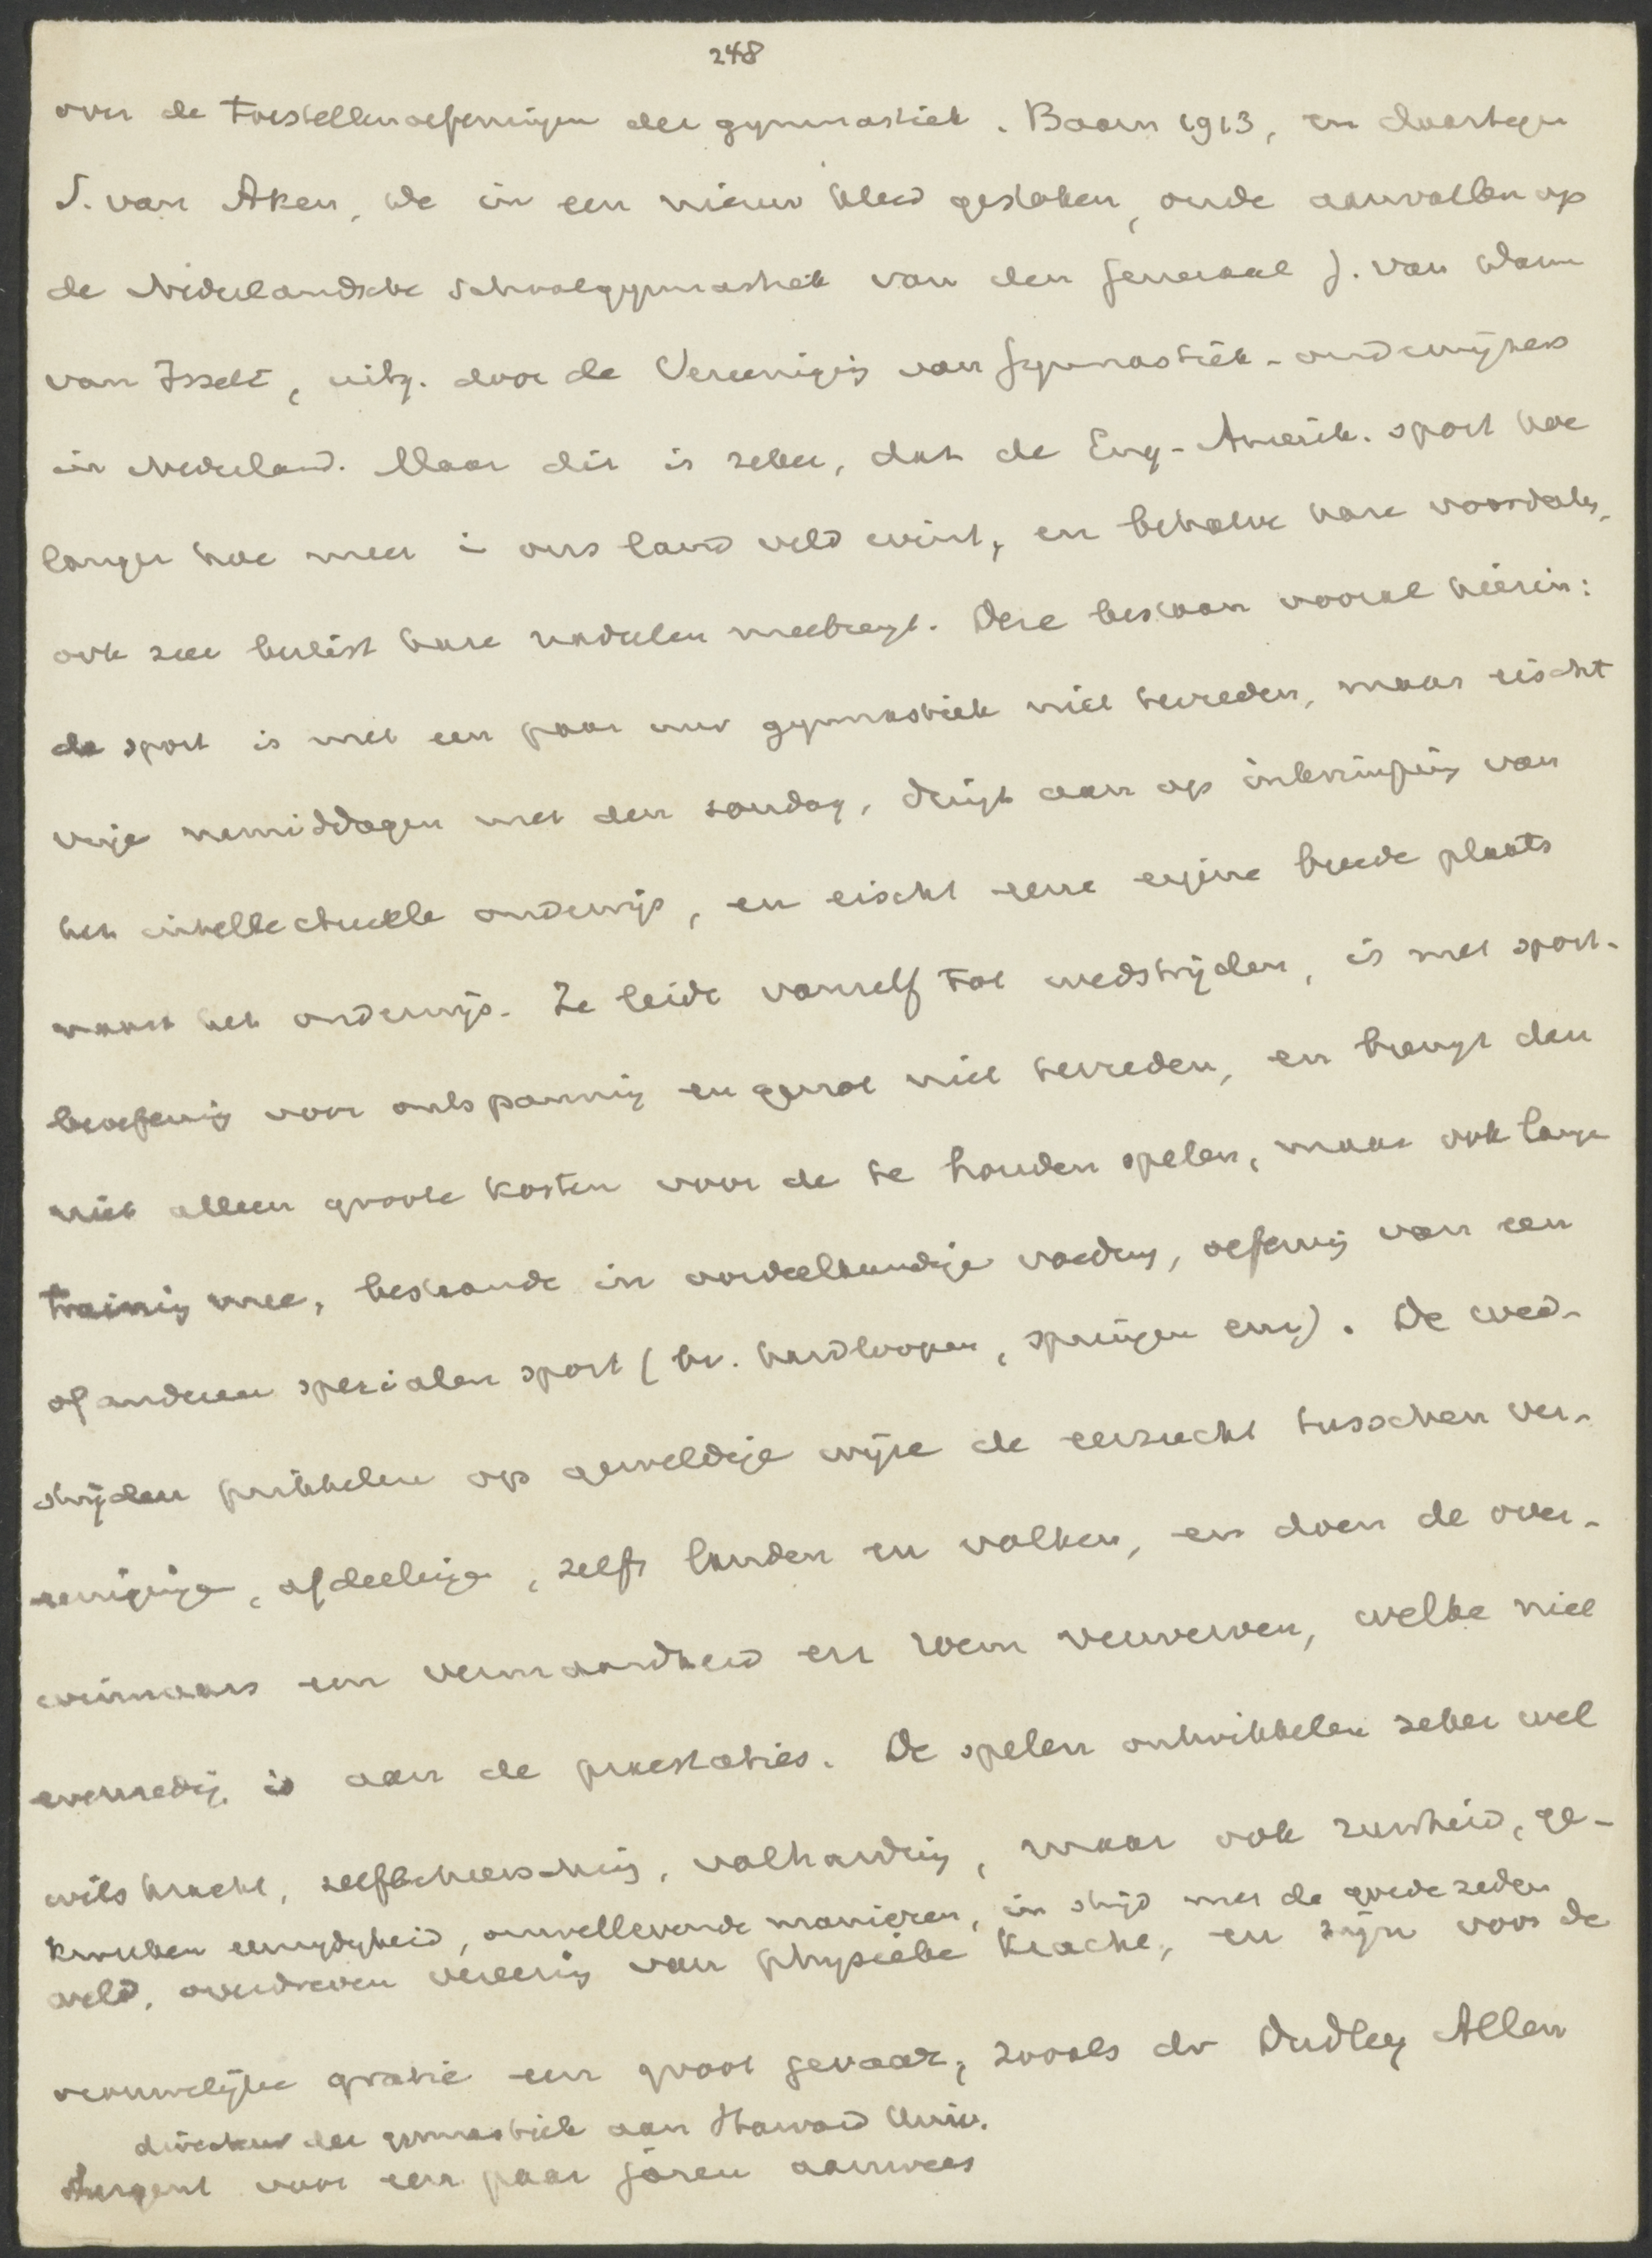 248
over de toestellenoefeningen der gymnastiek. Baarn 1913, en daartegen
J. van Aken, De in een nieuw kleed gestoken, oude aanvallen op
de Nederlandsche schoolgymnastiek van den generaal J. van Dam
van Isselt, uitg. door de Vereeniging van Gymnastiek-onderwijzers
in Nederland. Maar dit is zeker, dat de Eng-Amerik. sport hoe
langer hoe meer in ons land veld wint, en behalve hare voordeelen,
ook zeer beslist hare nadeelen meebrengt. Deze bestaan vooral hierin:
de sport is met een paar uur gymnastiek niet tevreden, maar eischt
vrije namiddagen met den zondag, dringt aan op inkrimping van
het intellectueele onderwijs, en eischt eene eigene breede plaats
naast het onderwijs. Ze leidt vanzelf tot wedstrijden, is met sport-
beoefening voor ontspanning en genot niet tevreden, en brengt dan
niet alleen groote kosten voor de te houden spelen, maar ook lange
training mee, bestaande in oordeelkundige voeding, oefening van een
of anderen specialen sport (bv. hardloopen, springen enz). De wed-
strijden prikkelen op geweldige wijze de eerzucht tusschen ver-
eenigingen, afdeelingen, zelfs landen en volken, en doen de over-
winnaars een vermaardheid en roem verwerven, welke niet
evenredig is aan de praestaties. De spelen ontwikkelen zeker wel
wilskracht, zelfbeheersching, volharding, maar ook ruwheid, ge-
knoeien eenzijdigheid, onwellevende manieren, in strijd met de goede zeden
weld, overdreven vereering van physieke kracht, en zijn voor de
vrouwelijke gratie een groot gevaar, zooals dr Dudley Allen
directeur der gymnastiek aan Harvard Univ.
Sargent voor een paar jaren aanwees